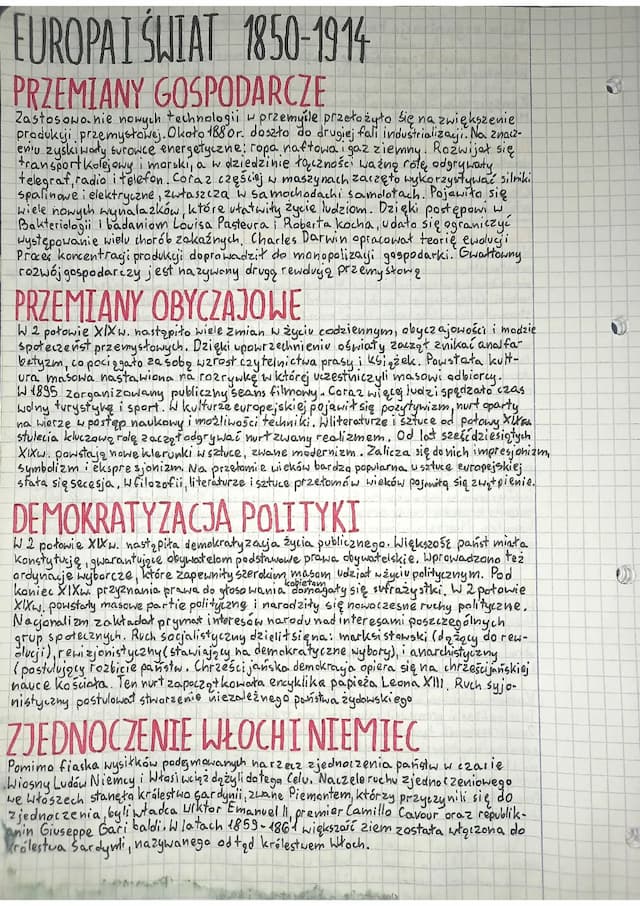 EUROPA I ŚWIAT 1850-1914
PRZEMIANY GOSPODARCZE
Zastosowanie nowych technologii w przemyśle przełożyło się na zwiększenie
produkcji przemysłowej. Około 1880r. doszło do drugiej fali industrializacji. Na znacz-
eniu zyskiwały surowce energetyczne: ropa naftowa i gaz ziemny. Rozwijał się
transport kolejowy i morski, a w dziedzinie łączności ważną rolę odgrywały
telegraf, radio i telefon. Coraz częściej w maszynach zaczęto wykorzystywać silniki
spalinowe i elektryczne, zwłaszcza w samochodach i samolotach. Pojawiło się
wiele nowych wynalazków, które ułatwiły życie ludziom. Dzięki postępowi w
Bakteriologii i badaniom Louisa Pasteura i Roberta kocha, udało się ograniczyć
występowanie wielu chorób zakaźnych. Charles Darwin opracował teorię ewolucji
Proces koncentracji produkcji doprowadził do monopolizacji gospodarki. Gwałtowny
rozwój gospodarczy jest nazywany drugą rewolucją przemysłową
PRZEMIANY OBYCZAJOWE
W 2 połowie XIXw. nastąpiło wiele zmian w życiu codziennym, obyczajowości i modzie
społeczeństw przemysłowych. Dzięki upowszechnieniu oświaty zaczął znikać analfa-
betyzm, co pociągało za sobą wzrost czytelnictwa prasy i książek. Powstała kult-
ura masowa nastawiona na rozrywkę w której uczestniczyli masowi odbiorcy.
W 1895 zorganizowany publiczny seans filmowy. Coraz więcej ludzi spędzało czas
wolny turystyką i sport. W kulturze europejskiej pojawił się pozytywizm, nurt oparty
na wierze w postęp naukowy i możliwości techniki. W literaturze i sztuce od połowy XIX
stulecia kluczową rolę zaczął odgrywać nurt zwany realizmem. Od lat sześćdziesiątych
XIXw. powstają nowe kierunki w sztuce, zwane modernizm. Zalicza się do nich impresjonizm,
symbolizm i ekspresjonizm. Na przełomie wieków bardzo popularna w sztuce europejskiej
stała się secesja. W filozofii, literaturze i sztuce przełomów wieków pojawiła się zwątpienie.
DEMOKRATYZACJA POLITYKI
W 2 połowie XIXw. nastąpiła demokratyzacja życia publicznego. Większość państ miała
konstytucję, gwarantujące obywatelom podstawowe prawa obywatelskie. Wprowadzono też
ordynacje wyborcze, które zapewniły szerokim masom udział w życiu politycznym. Pod
koniec XIXw. przyznania prawa do głosowania kobietom domagały się sufrażystki. W 2 połowie
XIXw. powstały masowe partie polityczne i narodziły się nowoczesne ruchy polityczne.
Nacjonalizm zakładał prymat interesów narodu nad interesami poszczególnych
grup społecznych. Ruch socjalistyczny dzielił się na: marksistowski (dążący do rew-
olucji), rewizjonistyczny (stawiający na demokratyczne wybory), i anarchistyczny
(postulujący rozbicie państw. Chrześcijańska demokracja opiera się na chrześcijańskiej
nauce kościoła. Ten nurt zapoczątkowała encyklika papieża Leona XIII. Ruch syjo-
nistyczny postulował stworzenie niezależnego państwa żydowskiego
ZJEDNOCZENIE WŁOCH I NIEMIEC
Pomimo fiaska wysiłków podejmowanych na rzecz zjednoczenia państw w czasie
Wiosny Ludów Niemcy i Włosi wciąż dążyli do tego celu. Na czele ruchu zjednoczeniowego
we Włoszech stanęła królestwo sardynii, zwane Piemontem, którzy przyczynili się do
zjednoczenia, byli władca Wiktor Emanuel II, premier Camillo Cavour oraz republik-
anin Giuseppe Garibaldi. W latach 1859-1861 większość ziem została włączona do
królestwa Sardynii, nazywanego odtąd królestwem Włoch.